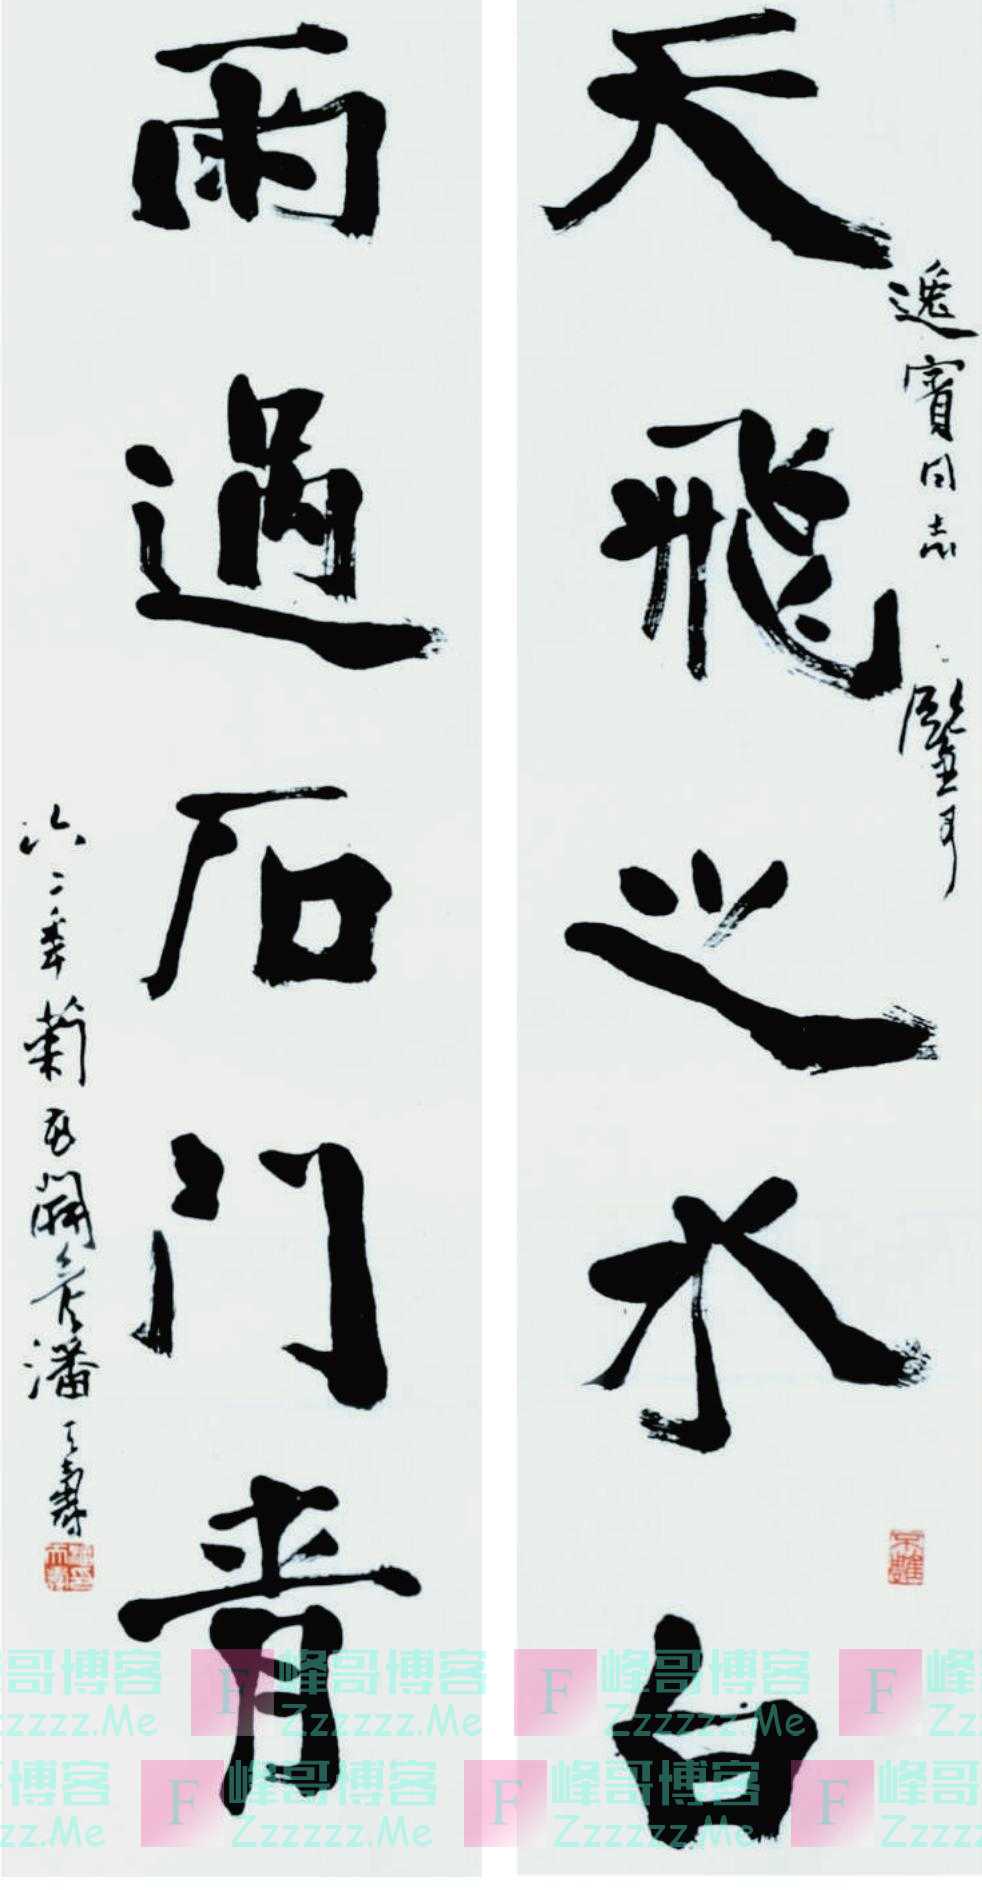 天飛之水白
逸賓同志 鑒可
雨過石门青
六二年菊花開候 潘天壽
峰哥博客
Zzzzzz.Me
F 峰哥博客
Zzzzzz.Me
F 峰哥博客
Zzzzzz.Me
F 峰
Zz
哥博客
zz.Me
F 峰哥博客
Zzzzzz.Me
F 峰哥博客
Zzzzzz.Me
F 峰哥
Zzzz